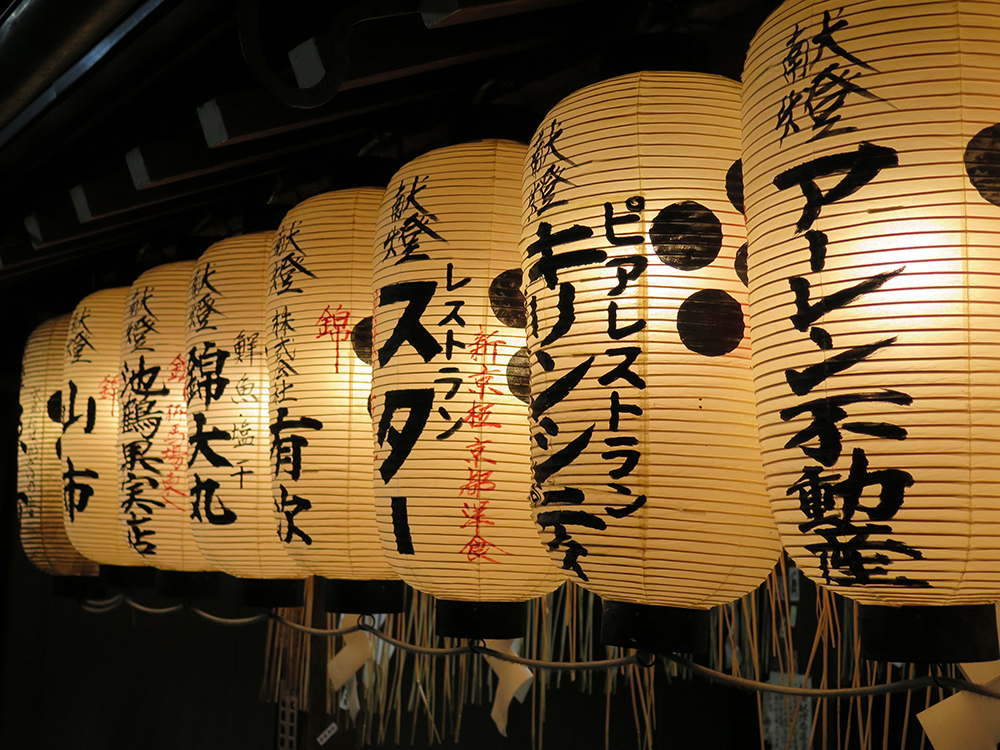 献燈
アーレンス不動産
献燈
ピアレストラン
キリンシティ
献燈
レストラン
スター
新京極京都洋食
献燈
錦
株式会社
有次
献燈
鮮魚・塩干
錦大丸
献燈
錦
池鶴果実店
献燈
錦
山市